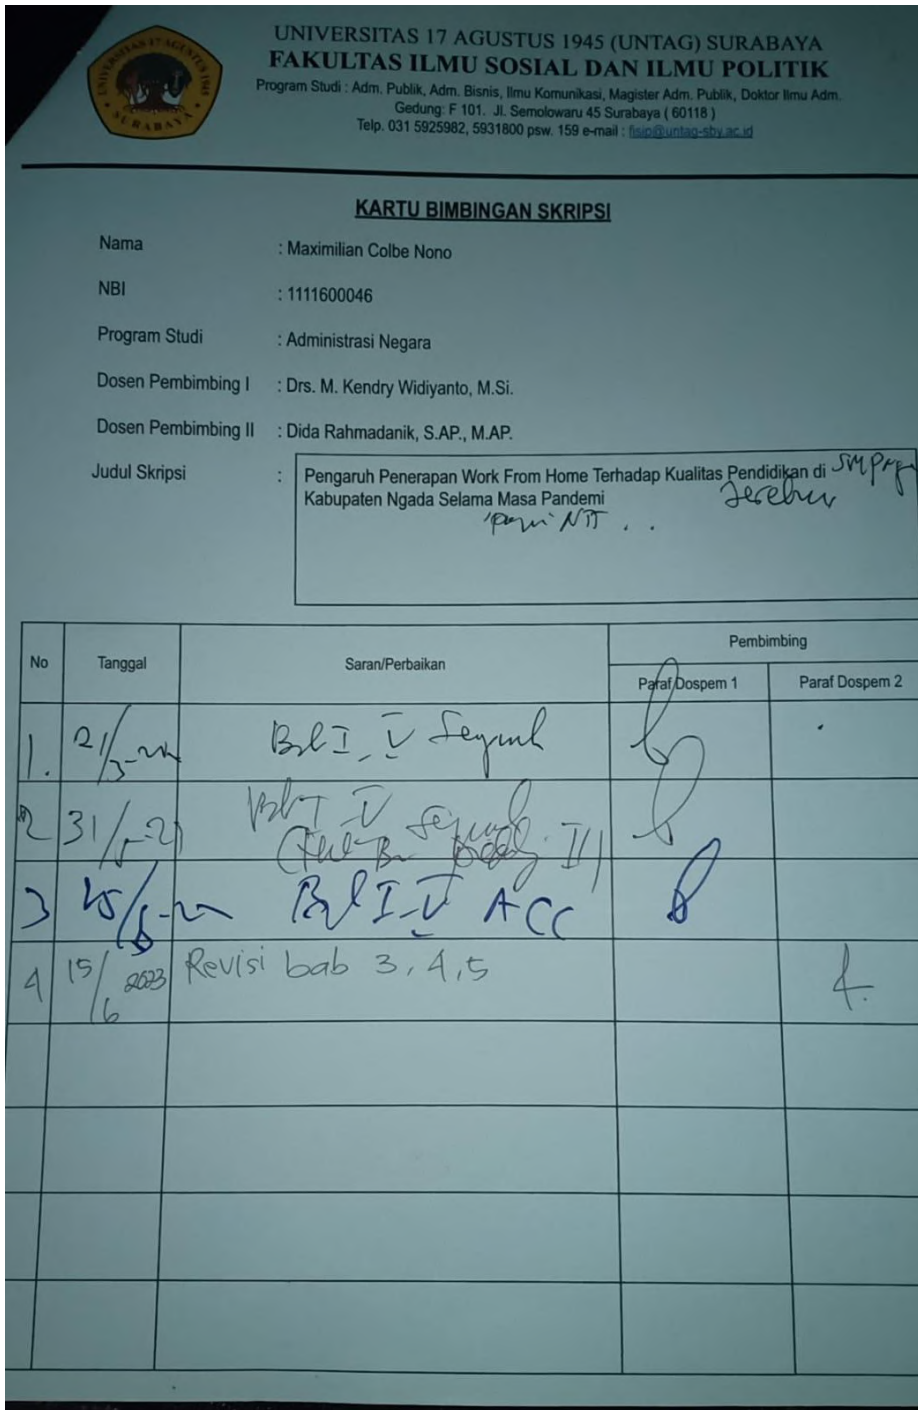 UNIVERSITAS 17 AGUSTUS 1945 (UNTAG) SURABAYA
FAKULTAS ILMU SOSIAL DAN ILMU POLITIK
Program Studi : Adm. Publik, Adm. Bisnis, Ilmu Komunikasi, Magister Adm. Publik, Doktor Ilmu Adm.
Gedung: F 101. Jl. Semolowaru 45 Surabaya ( 60118 )
Telp. 031 5925982, 5931800 psw. 159 e-mail : fisip@untag-sby.ac.id
UNIVERSITAS 17 AGUSTUS 1945
SURABAYA
KARTU BIMBINGAN SKRIPSI
Nama : Maximilian Colbe Nono
NBI : 1111600046
Program Studi : Administrasi Negara
Dosen Pembimbing I : Drs. M. Kendry Widiyanto, M.Si.
Dosen Pembimbing II : Dida Rahmadanik, S.AP., M.AP.
Judul Skripsi : Pengaruh Penerapan Work From Home Terhadap Kualitas Pendidikan di
Kabupaten Ngada Selama Masa Pandemi
NTT
No Tanggal Saran/Perbaikan Pembimbing
Paraf Dospem 1 Paraf Dospem 2
1. Bab I-V
2 31/
3 Bab I-V ACC
4 15/6 2023 Revisi bab 3, 4, 5